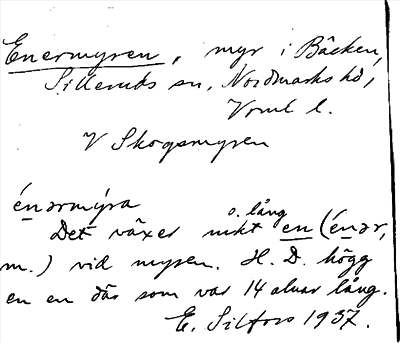 Enermyren, myr i Bäcken,
Silleruds sn, Nordmarks hd,
Vrml l.
V Skogsmyren
énərmýra
o. lång
Det växer mkt en (énər,
m.) vid myren. H. D. högg
en en där som var 14 alnar lång.
E. Silfors 1937.